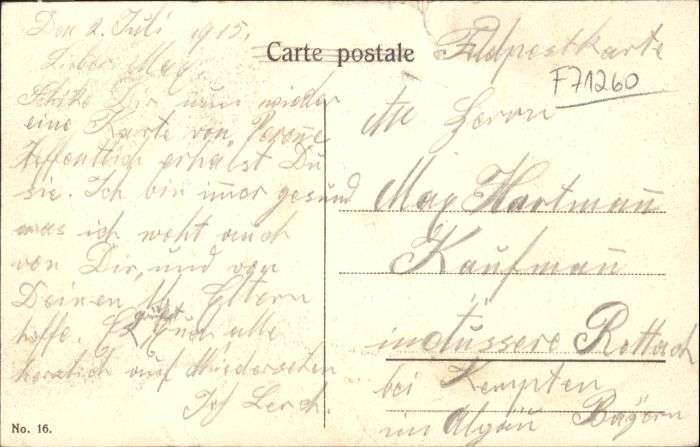 Den 2. Juli 1915.
Lieber Max.
Schike Dir nun wieder
eine Karte von Perone
hoffentlich erhälst Du
sie. Ich bin imer gesund
was ich woht auch
von Dir, und von
Deinen lb. Eltern
hoffe. Es grüßt Euch alle
herzlich auf Wiedersehen
Jos Lerch.
No. 16.
Carte postale
Feldpostkarte
F71260
An Herrn
Max Hartmann
Kaufmann
in äussere Rottach
bei Kempten
im Algäu Bayern